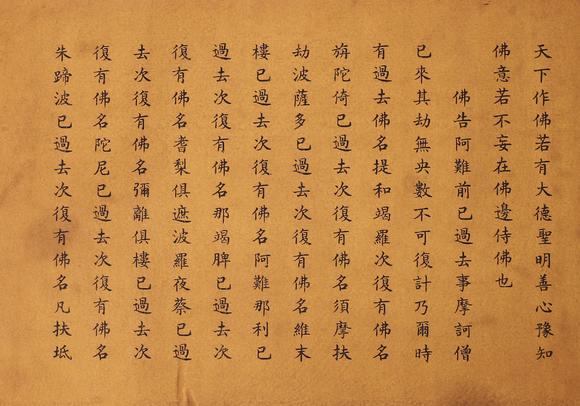 天下作佛若有大德聖明善心豫知
佛意若不妄在佛邊侍佛也
佛告阿難前已過去事摩訶僧
已來其劫無央數不可復計乃爾時
有過去佛名提和竭羅次復有佛名
旃陀倚已過去次復有佛名須摩扶
劫波薩多已過去次復有佛名維末
樓已過去次復有佛名阿難那利已
過去次復有佛名那竭脾已過去次
復有佛名耆梨俱遮波羅夜蔡已過
去次復有佛名彌離俱樓已過去次
復有佛名陀尼已過去次復有佛名
朱蹄波已過去次復有佛名凡扶坻